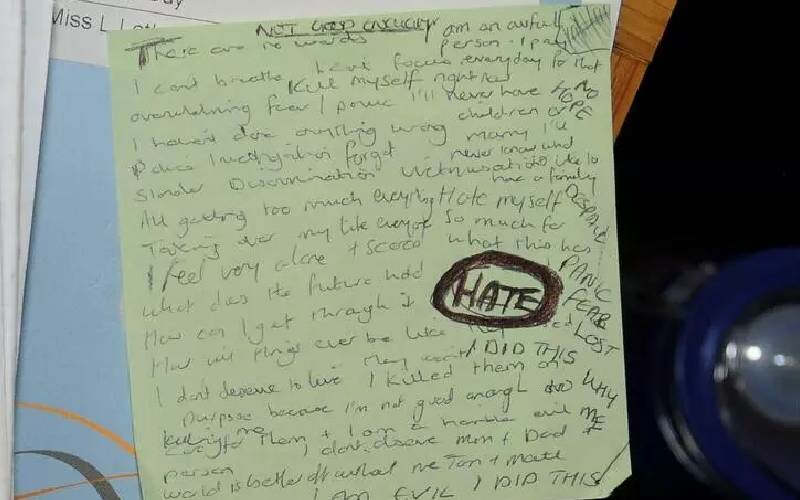 Miss L
NOT GOOD ENOUGH
There are no words
am an awful
person - I pay
I can't breathe have focus everyday for that
Kill myself right now
overwhelming fear / panic I'll never have NO
children or HOPE
I haven't done anything wrong marry I'll
Police Investigation forget never know what
Slander Discrimination Victimisation it's like to
have a family
All getting too much everything Hate myself DESPAIR
Taking over my life everyone so much for
I feel very alone + scared what this has
What does the future hold PANIC
HATE
How can I get through it FEAR
How will things ever be like they LOST
I DID THIS
I don't deserve to live I killed them on
purpose because I'm not good enough WHY
killing me
care for them + I am a horrible evil ME
person I don't deserve Mum + Dad +
world is better off without me Tom + Matt
I AM EVIL I DID THIS